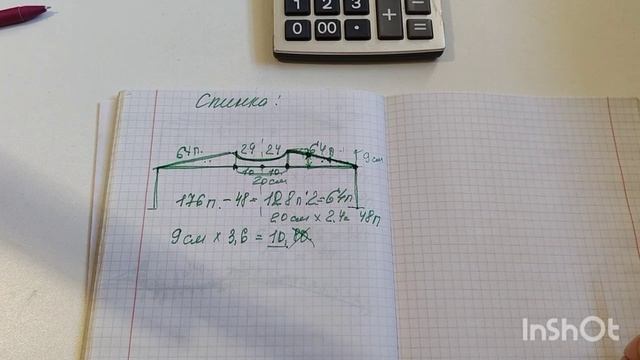 1 2 3 +
0 00 . =
Спинка:
64п. 24 24 64п. 9см
10. 10.
20см
176п. - 48 = 128п:2 = 64п
20см × 2,4 = 48п
9см × 3,6 = 10,
InShOt